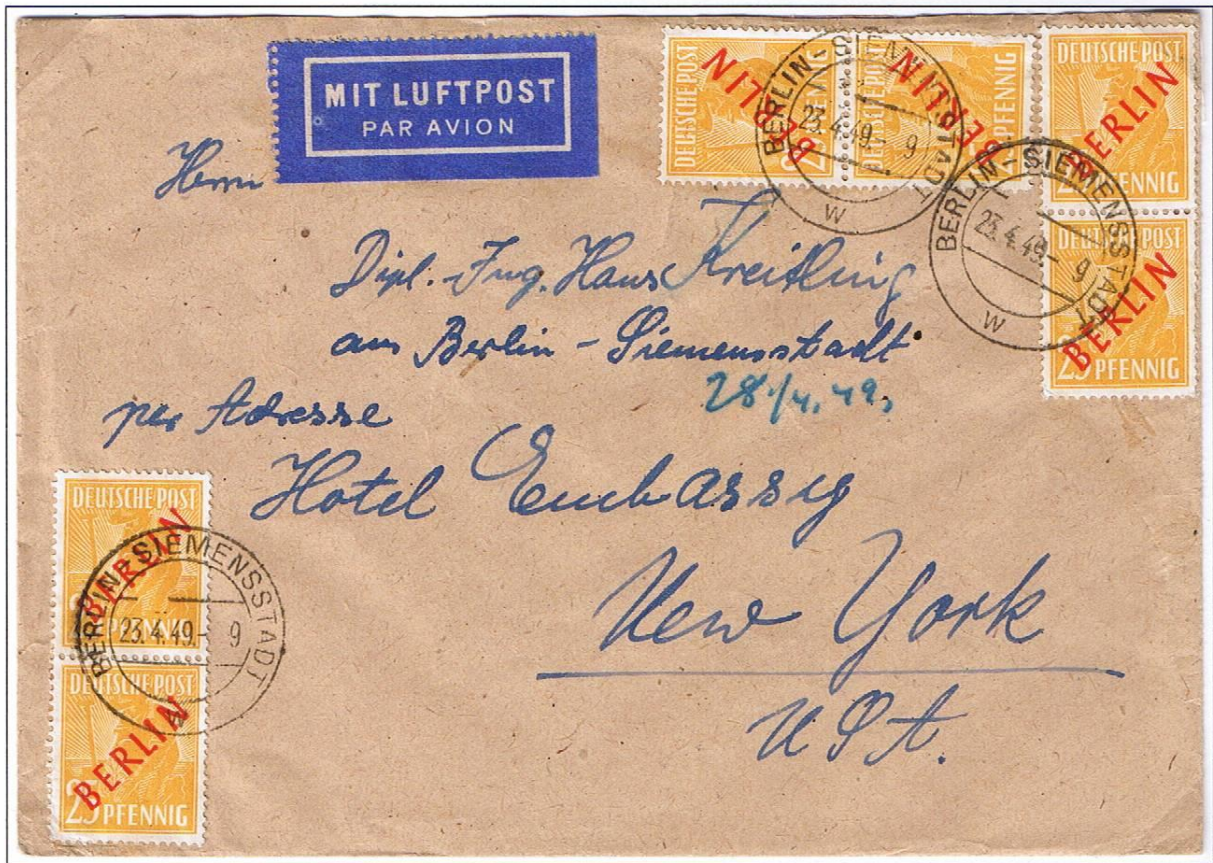 MIT LUFTPOST
PAR AVION
DEUTSCHE POST
BERLIN
25 PFENNIG
DEUTSCHE POST
BERLIN
PFENNIG
DEUTSCHE POST
BERLIN
PFENNIG
DEUTSCHE POST
BERLIN
25 PFENNIG
BERLIN-SIEMENSSTADT
23.4.49.- 9
W
BERLIN-SIEMENSSTADT
23.4.49.- 9
W
Herrn
Dipl.-Ing. Hans Kreitling
aus Berlin-Siemensstadt
28./4.49.
per Adresse
Hotel Embassy
New York
USA.
DEUTSCHE POST
BERLIN
PFENNIG
BERLIN-SIEMENSSTADT
23.4.49.- 9
W
DEUTSCHE POST
BERLIN
25 PFENNIG